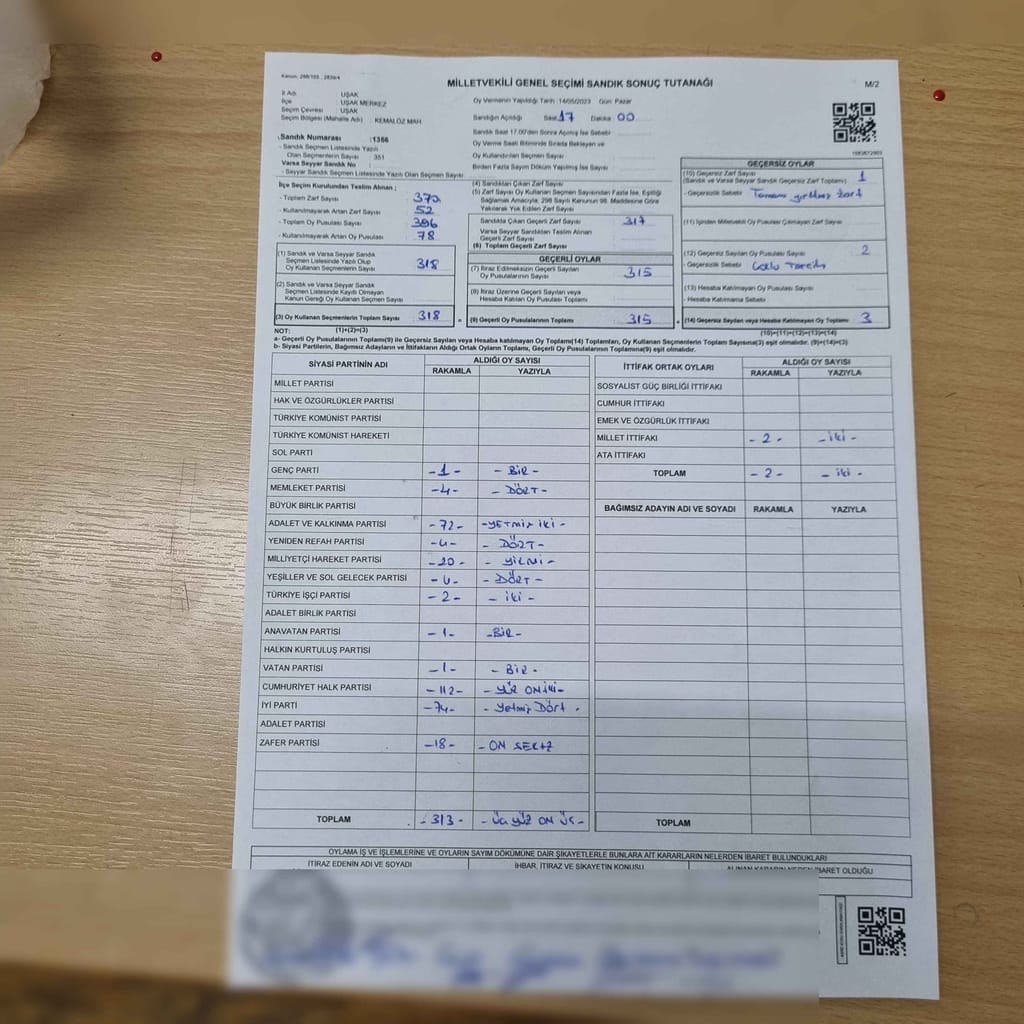 Kanun, 298/105 , 2839/4
MİLLETVEKİLİ GENEL SEÇİMİ SANDIK SONUÇ TUTANAĞI
M/2
İl Adı : UŞAK
İlçe : UŞAK MERKEZ
Seçim Çevresi : UŞAK
Seçim Bölgesi (Mahalle Adı) : KEMALÖZ MAH.
Oy Vermenin Yapıldığı Tarih :14/05/2023 Gün: Pazar
Sandığın Açıldığı Saat 17 Dakika 00
Sandık Saat 17.00'den Sonra Açılmış İse Sebebi :
Oy Verme Saati Bitiminde Sırada Bekleyen ve
Oy Kullandırılan Seçmen Sayısı
Birden Fazla Sayım Döküm Yapılmış İse Sayısı
Sandık Numarası :1356
- Sandık Seçmen Listesinde Yazılı
Olan Seçmenlerin Sayısı : 351
Varsa Seyyar Sandık No :
- Seyyar Sandık Seçmen Listesinde Yazılı Olan Seçmen Sayısı
İlçe Seçim Kurulundan Teslim Alınan ;
- Toplam Zarf Sayısı 370
- Kullanılmayarak Artan Zarf Sayısı 52
- Toplam Oy Pusulası Sayısı 396
- Kullanılmayarak Artan Oy Pusulası 78
(1) Sandık ve Varsa Seyyar Sandık
Seçmen Listesinde Yazılı Olup
Oy Kullanan Seçmenlerin Sayısı 318
(2) Sandık ve Varsa Seyyar Sandık
Seçmen Listesinde Kaydı Olmayan
Kanun Gereği Oy Kullanan Seçmen Sayısı
(3) Oy Kullanan Seçmenlerin Toplam Sayısı 318
(1)+(2)=(3)
(4) Sandıktan Çıkan Zarf Sayısı
(5) Zarf Sayısı Oy Kullanan Seçmen Sayısından Fazla İse, Eşitliği
Sağlamak Amacıyla; 298 Sayılı Kanunun 98. Maddesine Göre
Yakılarak Yok Edilen Zarf Sayısı
Sandıkta Çıkan Geçerli Zarf Sayısı 317
Varsa Seyyar Sandıktan Teslim Alınan
Geçerli Zarf Sayısı
(6) Toplam Geçerli Zarf Sayısı
GEÇERLİ OYLAR
(7) İtiraz Edilmeksizin Geçerli Sayılan
Oy Pusulalarının Sayısı 315
(8) İtiraz Üzerine Geçerli Sayılan veya
Hesaba Katılan Oy Pusulası Toplamı
= (9) Geçerli Oy Pusulalarının Toplamı 315
GEÇERSİZ OYLAR
(10) Geçersiz Zarf Sayısı
(Sandık ve Varsa Seyyar Sandık Geçersiz Zarf Toplamı) 1
- Geçersizlik Sebebi zarf
(11) İçinden Milletvekili Oy Pusulası Çıkmayan Zarf Sayısı
(12) Geçersiz Sayılan Oy Pusulası Sayısı 2
- Geçersizlik Sebebi
(13) Hesaba Katılmayan Oy Pusulası Sayısı
- Hesaba Katılmama Sebebi
+ (14) Geçersiz Sayılan veya Hesaba Katılmayan Oy Toplamı 3
(10)+(11)+(12)+(13)=(14)
NOT:
a- Geçerli Oy Pusulalarının Toplamı(9) ile Geçersiz Sayılan veya Hesaba katılmayan Oy Toplamı(14) Toplamları, Oy Kullanan Seçmenlerin Toplam Sayısına(3) eşit olmalıdır. (9)+(14)=(3)
b- Siyasi Partilerin, Bağımsız Adayların ve İttifakların Aldığı Ortak Oyların Toplamı, Geçerli Oy Pusulalarının Toplamına(9) eşit olmalıdır.
SİYASİ PARTİNİN ADI ALDIĞI OY SAYISI
RAKAMLA YAZIYLA
MİLLET PARTİSİ
HAK VE ÖZGÜRLÜKLER PARTİSİ
TÜRKİYE KOMÜNİST PARTİSİ
TÜRKİYE KOMÜNİST HAREKETİ
SOL PARTİ
GENÇ PARTİ -1- - BİR -
MEMLEKET PARTİSİ -4- - DÖRT -
BÜYÜK BİRLİK PARTİSİ
ADALET VE KALKINMA PARTİSİ -72- -YETMİŞ İKİ -
YENİDEN REFAH PARTİSİ -4- - DÖRT-
MİLLİYETÇİ HAREKET PARTİSİ -20- - YİRMİ-
YEŞİLLER VE SOL GELECEK PARTİSİ -4- - DÖRT -
TÜRKİYE İŞÇİ PARTİSİ -2- - iki -
ADALET BİRLİK PARTİSİ
ANAVATAN PARTİSİ -1- -BİR-
HALKIN KURTULUŞ PARTİSİ
VATAN PARTİSİ -1- - BİR -
CUMHURİYET HALK PARTİSİ -112- - YÜZ ONİKİ-
İYİ PARTİ -74- - Yetmiş Dört -
ADALET PARTİSİ
ZAFER PARTİSİ -18- - ON SEKİZ
TOPLAM -313- - ÜÇ YÜZ ON ÜÇ -
İTTİFAK ORTAK OYLARI ALDIĞI OY SAYISI
RAKAMLA YAZIYLA
SOSYALİST GÜÇ BİRLİĞİ İTTİFAKI
CUMHUR İTTİFAKI
EMEK VE ÖZGÜRLÜK İTTİFAKI
MİLLET İTTİFAKI - 2 - - iki -
ATA İTTİFAKI
TOPLAM - 2 - - iki -
BAĞIMSIZ ADAYIN ADI VE SOYADI RAKAMLA YAZIYLA
TOPLAM
OYLAMA İŞ VE İŞLEMLERİNE VE OYLARIN SAYIM DÖKÜMÜNE DAİR ŞİKAYETLERLE BUNLARA AİT KARARLARIN NELERDEN İBARET BULUNDUKLARI
İTİRAZ EDENİN ADI VE SOYADI İHBAR, İTİRAZ VE ŞİKAYETİN KONUSU ALINAN KARARIN NEDEN İBARET OLDUĞU